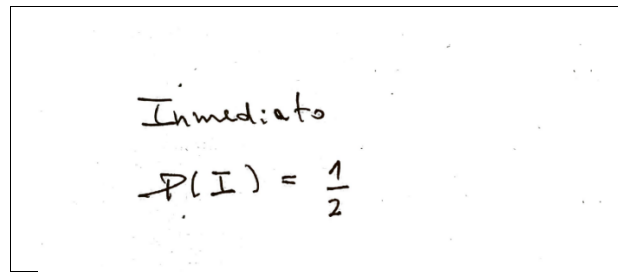 Inmediato
P(I) = 1/2